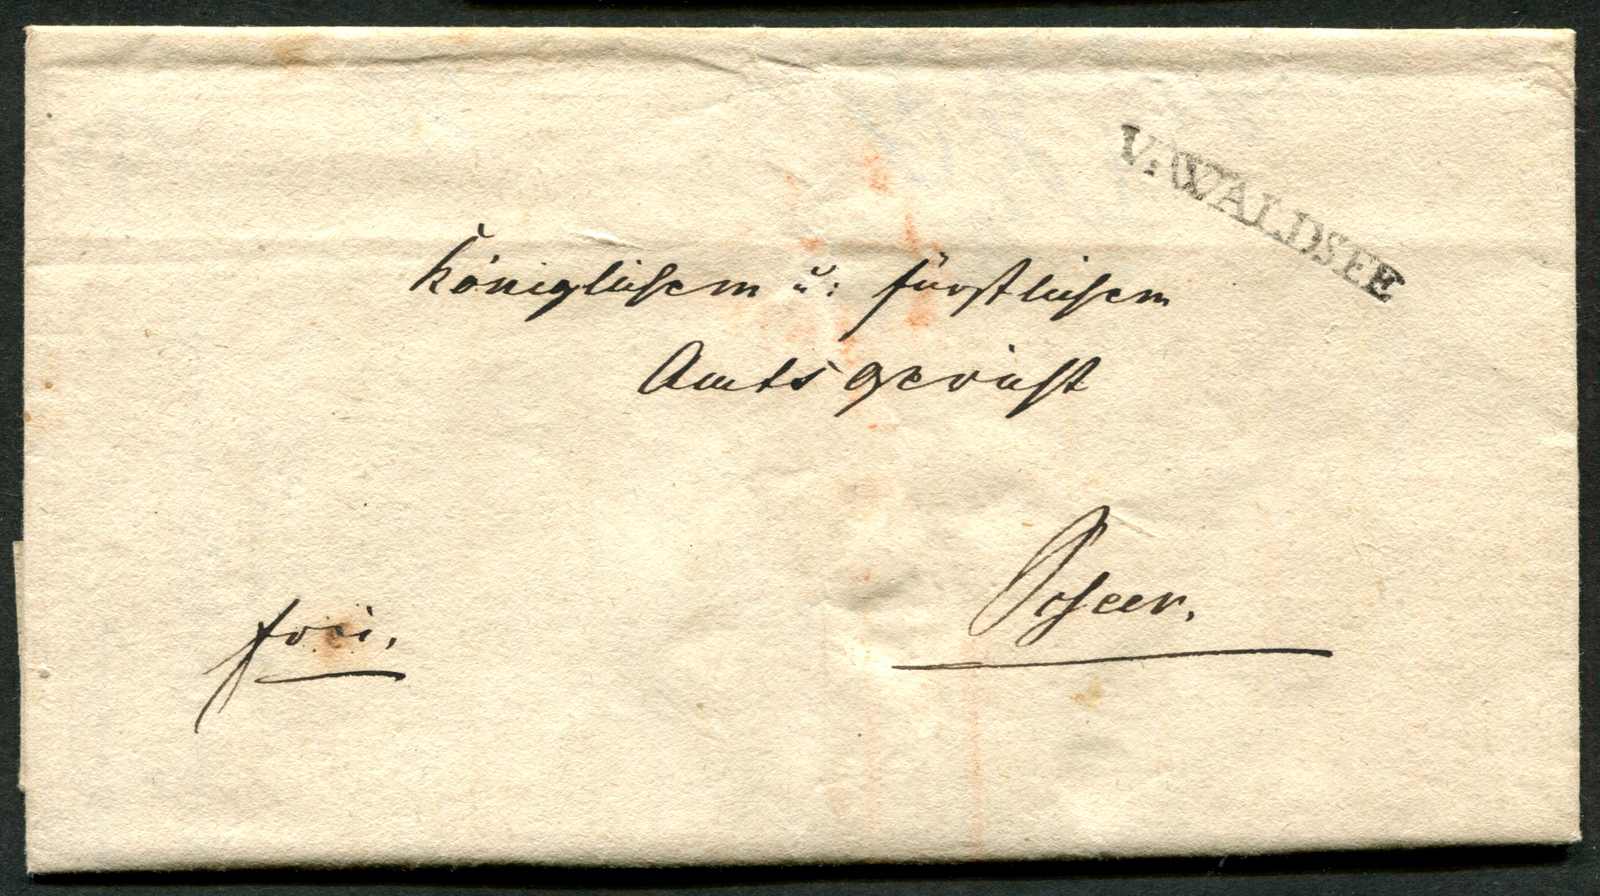 V. WALDSEE
Königlichem u: fürstlichem
Amtsgericht
Scheer.
frei.